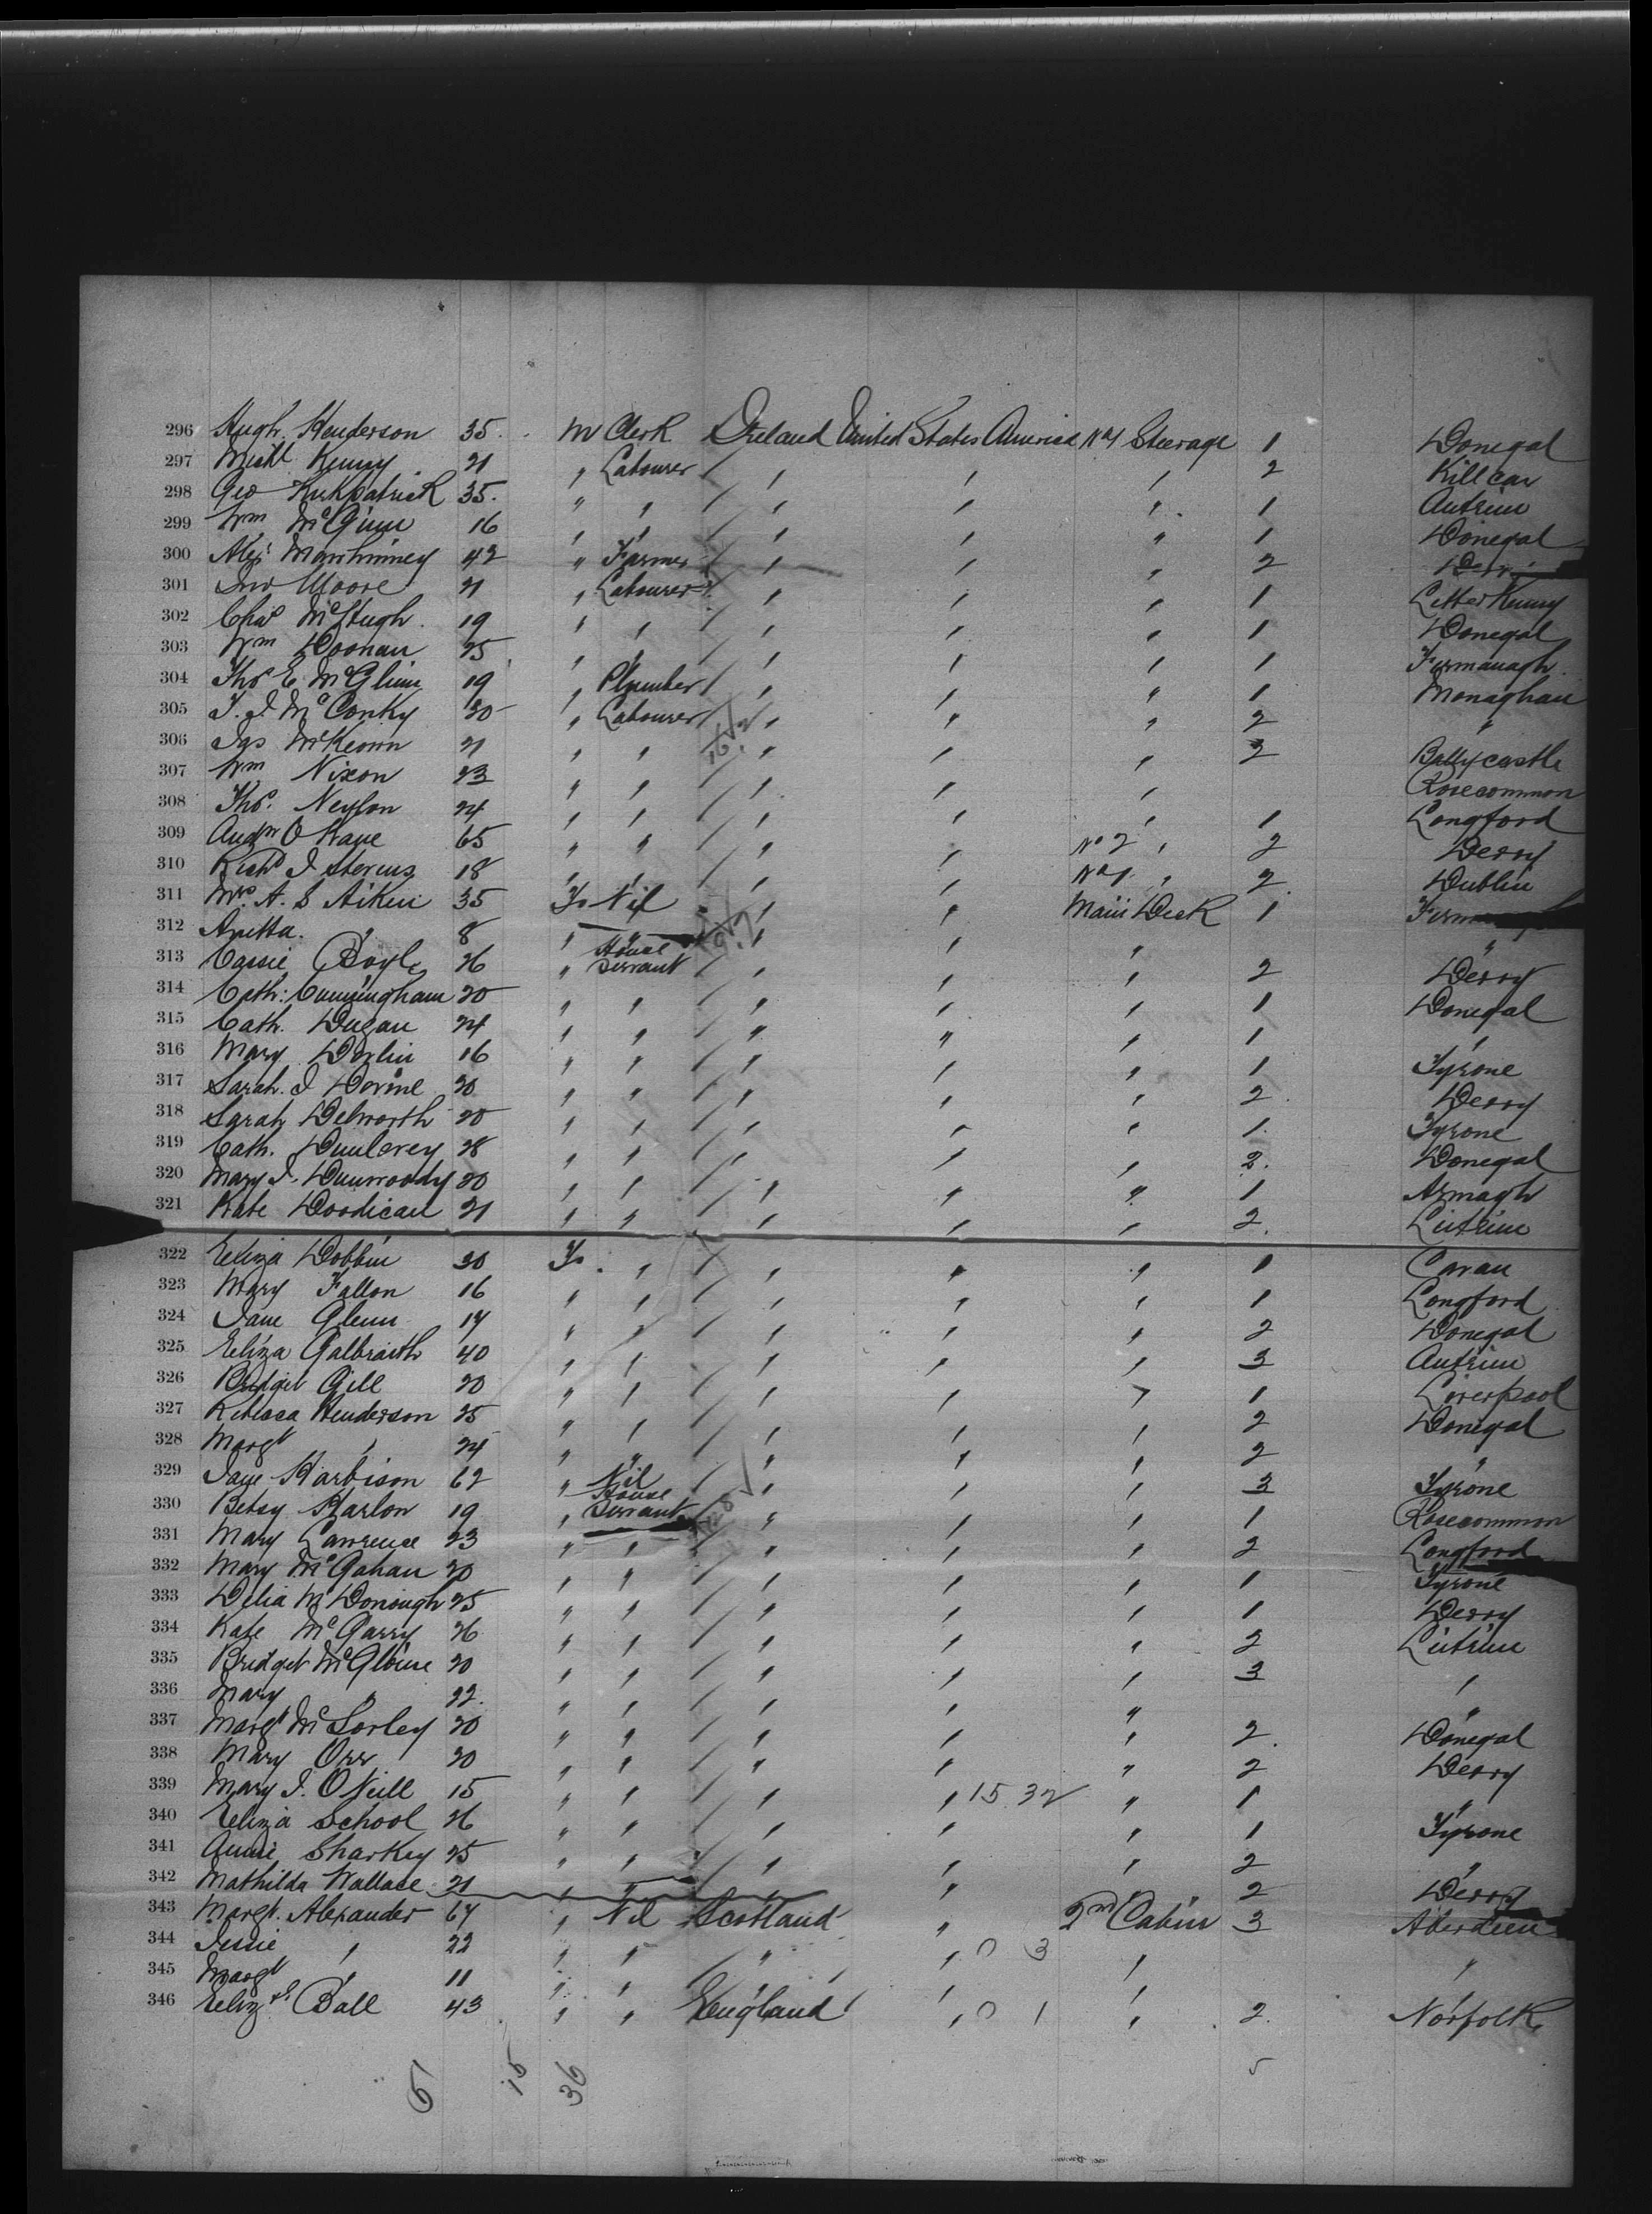 296 Hugh. Henderson 35 m Clerk Ireland United States America No 1 Steerage 1 Donegal
297 Michl Kenny 21 " Labourer " " " 2 Killcar
298 Geo Kirkpatrick 35. " " " " " 1 Antrim
299 Wm McGinn 16 " " " " " 1 Donegal
300 Alexr Mawhinney 42 " Farmer " " " 2
301 Jno Moore 21 " Labourer " " " 1 Letterkenny
302 Chas McHugh 19 " " " " " 1 Donegal
303 Wm Doonan 25 " " " " " 1 Fermanagh
304 Thos E McGlinn 19 " Plumber " " " 1 Monaghan
305 T. J. McConky 20 " Labourer " " " 2 "
306 Jas McKeown 21 " " " " " 2 Ballycastle
307 Wm Nixon 23 " " " " " Rosecommon
308 Thos. Neylon 24 " " " " " 1 Longford
309 Andw O Kane 65 " " " " No 2 " 2 Derry
310 Richd J Stevens 18 " " " " No 1. " 2. Dublin
311 Mrs. A. S Aiken 35 F Nil " " Main Deck 1
312 Anetta. " 8 " " " " " "
313 Cassie Boyle 26 " House Servant " " " 2 Derry
314 Cath: Cunningham 20 " " " " " 1 Donegal
315 Cath. Dugan 24 " " " " " 1 "
316 Mary Devlin 16 " " " " " 1 Tyrone
317 Sarah. J Devine 20 " " " " " 2. Derry
318 Sarah Delworth 20 " " " " " 1. Tyrone
319 Cath. Dunlevey 28 " " " " " 2. Donegal
320 Mary J. Dunwoody 20 " " " " " 1 Armagh
321 Kate Doodican 21 " " " " " 2. Leitrim
322 Eliza Dobbin 30 F " " " " 1 Cavan
323 Mary Fallon 16 " " " " " 1 Longford
324 Jane Glenn 17 " " " " " 2 Donegal
325 Eliza Galbraith 40 " " " " " 3 Antrim
326 Bridget Gill 20 " " " " " 1 Liverpool
327 Rebecca Henderson 25 " " " " " 2 Donegal
328 Margt " 24 " " " " " 2 "
329 Jane Harbison 62 " Nil " " " 3 Tyrone
330 Betsy Harlon 19 " House Servant " " " 1 Rosecommon
331 Mary Lawrence 23 " " " " " 2 Longford
332 Mary McGahan 20 " " " " " 1 Tyrone
333 Delia McDonough 25 " " " " " 1 Derry
334 Kate McGarry 26 " " " " " 2 Leitrim
335 Bridget McGloine 20 " " " " " 3 "
336 Mary " 22. " " " " " "
337 Margt McSorley 20 " " " " " 2. Donegal
338 Mary Orr 20 " " " " " 2 Derry
339 Mary J. O Neill 15 " " " " 15 32 " 1 "
340 Eliza School 26 " " " " " 1 Tyrone
341 Annie Sharkey 25 " " " " " 2 "
342 Mathilda Wallace 21 " " " " " 2 Derry
343 Margt. Alexander 67 " Nil Scotland " 2nd Cabin 3 Aberdeen
344 Jessie " 22 " " " " 0 3 " "
345 Margt " 11 " " " " "
346 Elizth Ball 43 " " England " 0 1 " 2. Norfolk
6 15 36 5